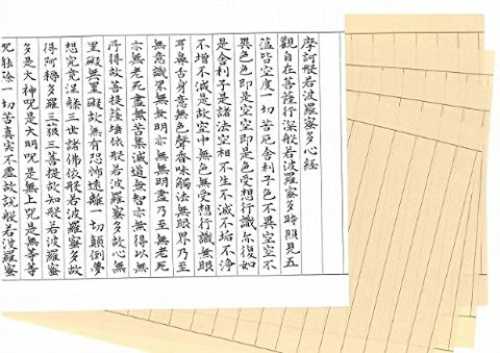 摩訶般若波羅蜜多心經
觀自在菩薩行深般若波羅蜜多時照見五
蘊皆空度一切苦厄舍利子色不異空空不
異色色即是空空即是色受想行識亦復如
是舍利子是諸法空相不生不滅不垢不淨
不增不減是故空中無色無受想行識無眼
耳鼻舌身意無色聲香味觸法無眼界乃至
無意識界無無明亦無無明盡乃至無老死
亦無老死盡無苦集滅道無智亦無得以無
所得故菩提薩埵依般若波羅蜜多故心無
罣礙無罣礙故無有恐怖遠離一切顛倒夢
想究竟涅槃三世諸佛依般若波羅蜜多故
得阿耨多羅三藐三菩提故知般若波羅蜜
多是大神咒是大明咒是無上咒是無等等
咒能除一切苦真實不虛故說般若波羅蜜